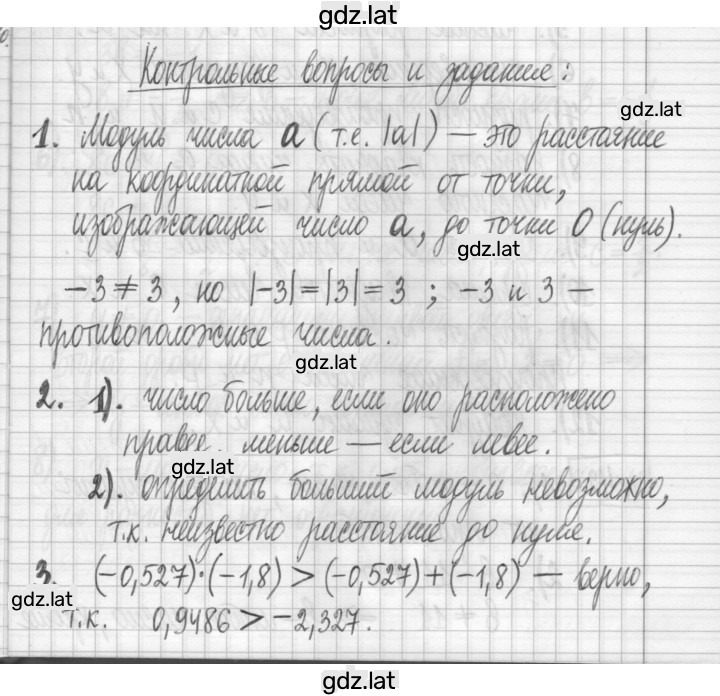 gdz.lat
Контрольные вопросы и задание:
gdz.lat
1. Модуль числа a (т.е. |a|) — это расстояние
на координатной прямой от точки,
изображающей число a, до точки O (нуль).
gdz.lat
-3 ≠ 3, но |-3| = |3| = 3 ; -3 и 3 —
противоположные числа.
gdz.lat
2. 1). число больше, если оно расположено
правее, меньше — если левее.
gdz.lat
2). определить больший модуль невозможно,
т.к. неизвестно расстояние до нуля.
3. (-0,527)·(-1,8) > (-0,527)+(-1,8) — верно,
gdz.lat
т.к. 0,9486 > -2,327.
gdz.lat